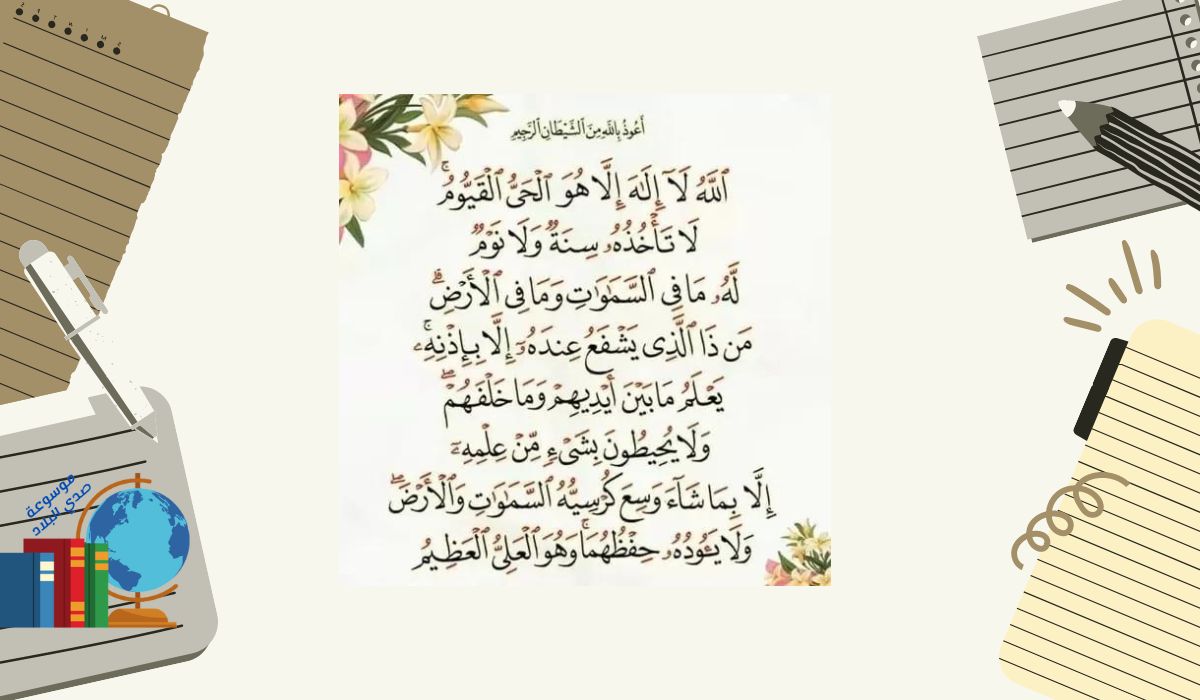 أَعُوذُ بِاللَّهِ مِنَ ٱلشَّيْطَانِ ٱلرَّجِيمِ
ٱللَّهُ لَآ إِلَٰهَ إِلَّا هُوَ ٱلْحَىُّ ٱلْقَيُّومُ ۚ
لَا تَأْخُذُهُۥ سِنَةٌ وَلَا نَوْمٌ
لَّهُۥ مَا فِى ٱلسَّمَٰوَٰتِ وَمَا فِى ٱلْأَرْضِ ۗ
مَن ذَا ٱلَّذِى يَشْفَعُ عِندَهُۥٓ إِلَّا بِإِذْنِهِۦ ۚ
يَعْلَمُ مَا بَيْنَ أَيْدِيهِمْ وَمَا خَلْفَهُمْ ۖ
وَلَا يُحِيطُونَ بِشَىْءٍ مِّنْ عِلْمِهِۦٓ
إِلَّا بِمَا شَآءَ وَسِعَ كُرْسِيُّهُ ٱلسَّمَٰوَٰتِ وَٱلْأَرْضَ ۖ
وَلَا يَـُٔودُهُۥ حِفْظُهُمَا ۚ وَهُوَ ٱلْعَلِىُّ ٱلْعَظِيمُ
موسوعة
صدى البلاد